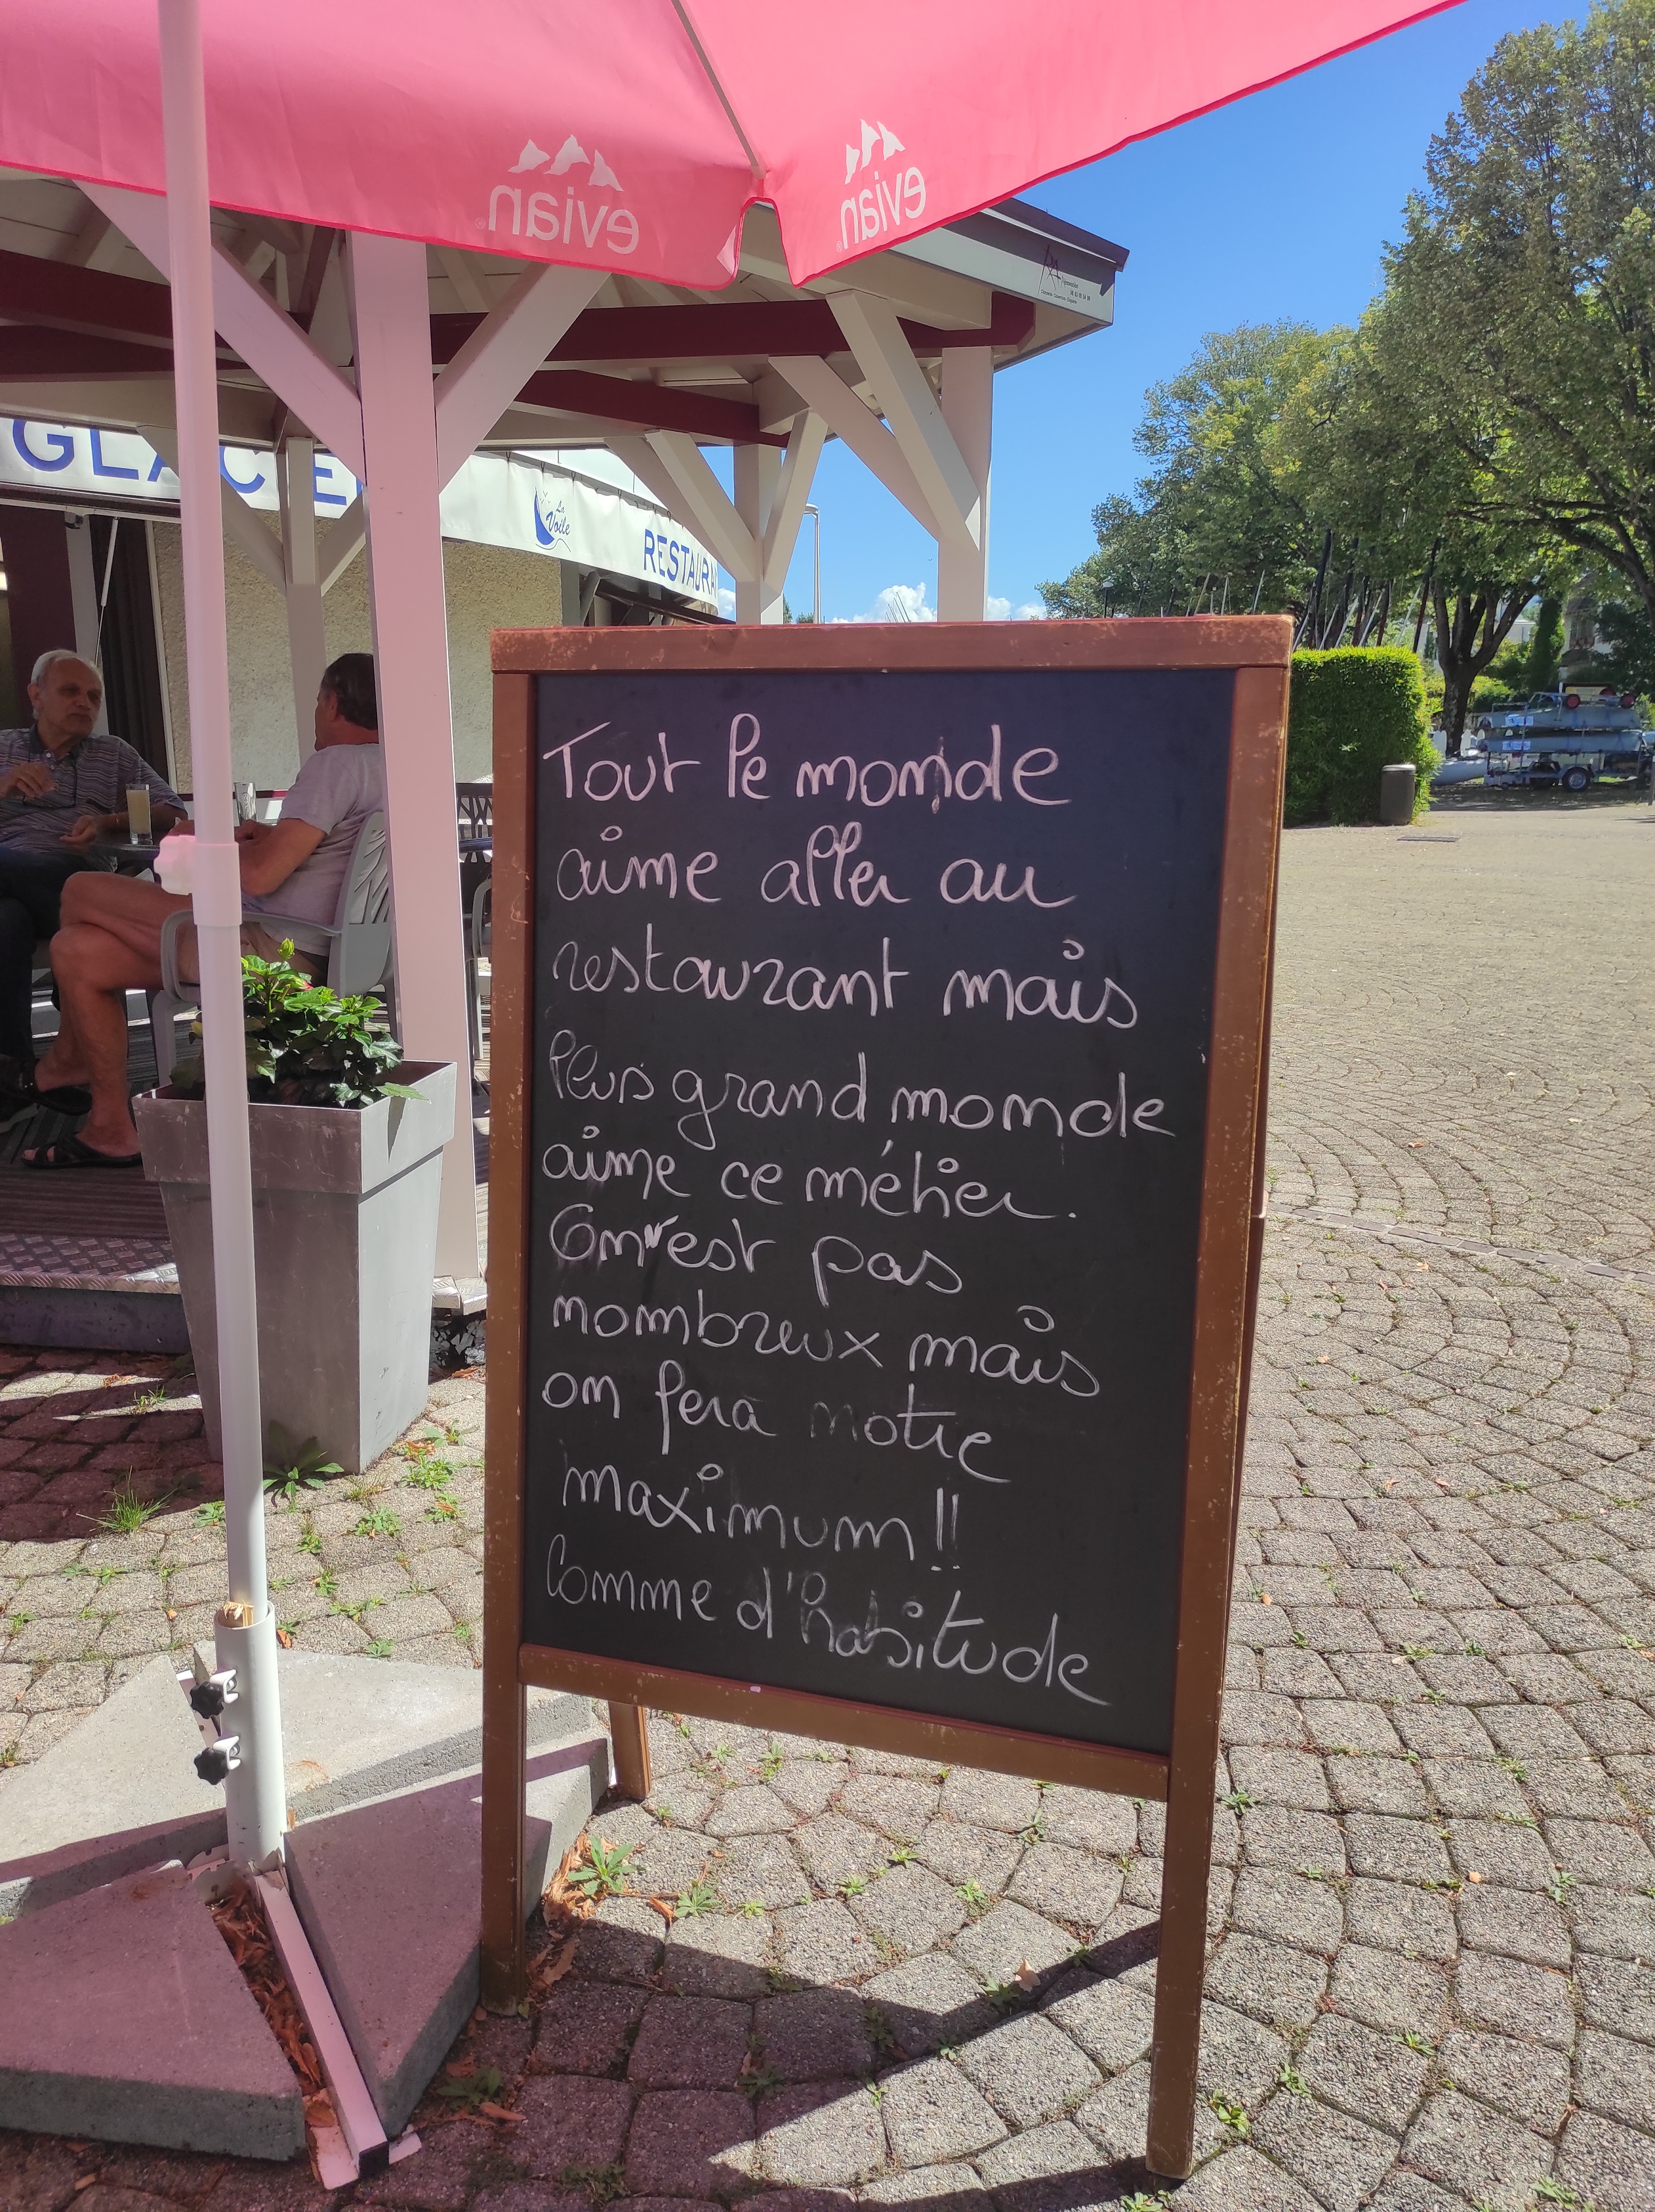 evian
evian
GLACIE
La
Voile
RESTAURA
Tout le monde
aime aller au
restaurant mais
Plus grand monde
aime ce métier.
On est pas
nombreux mais
on fera notre
maximum !!
Comme d'habitude